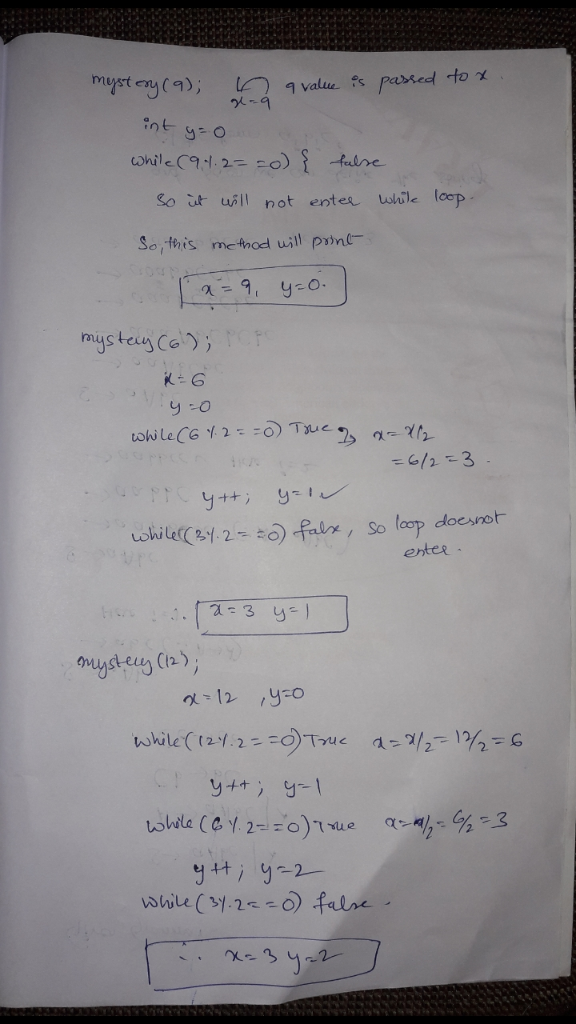 mystery(9); x=9 9 value is passed to x.
int y=0
while(9%2==0) { false
So it will not enter while loop.
So, this method will print
x=9, y=0.
mystery(6);
x=6
y=0
while(6%2==0) True x=x/2
=6/2=3.
y++; y=1 ✓
while(3%2==0) false, so loop doesnot
enter.
∴ x=3 y=1
mystery(12);
x=12, y=0
while(12%2==0) True x=x/2=12/2=6
y++; y=1
while(6%2==0) True x=x/2=6/2=3
y++; y=2
while(3%2==0) false.
∴ x=3 y=2